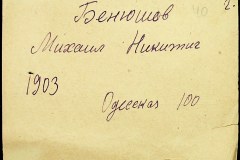 40
2.
Бенюшов
Михаил Никитич
1903
Одесская 100